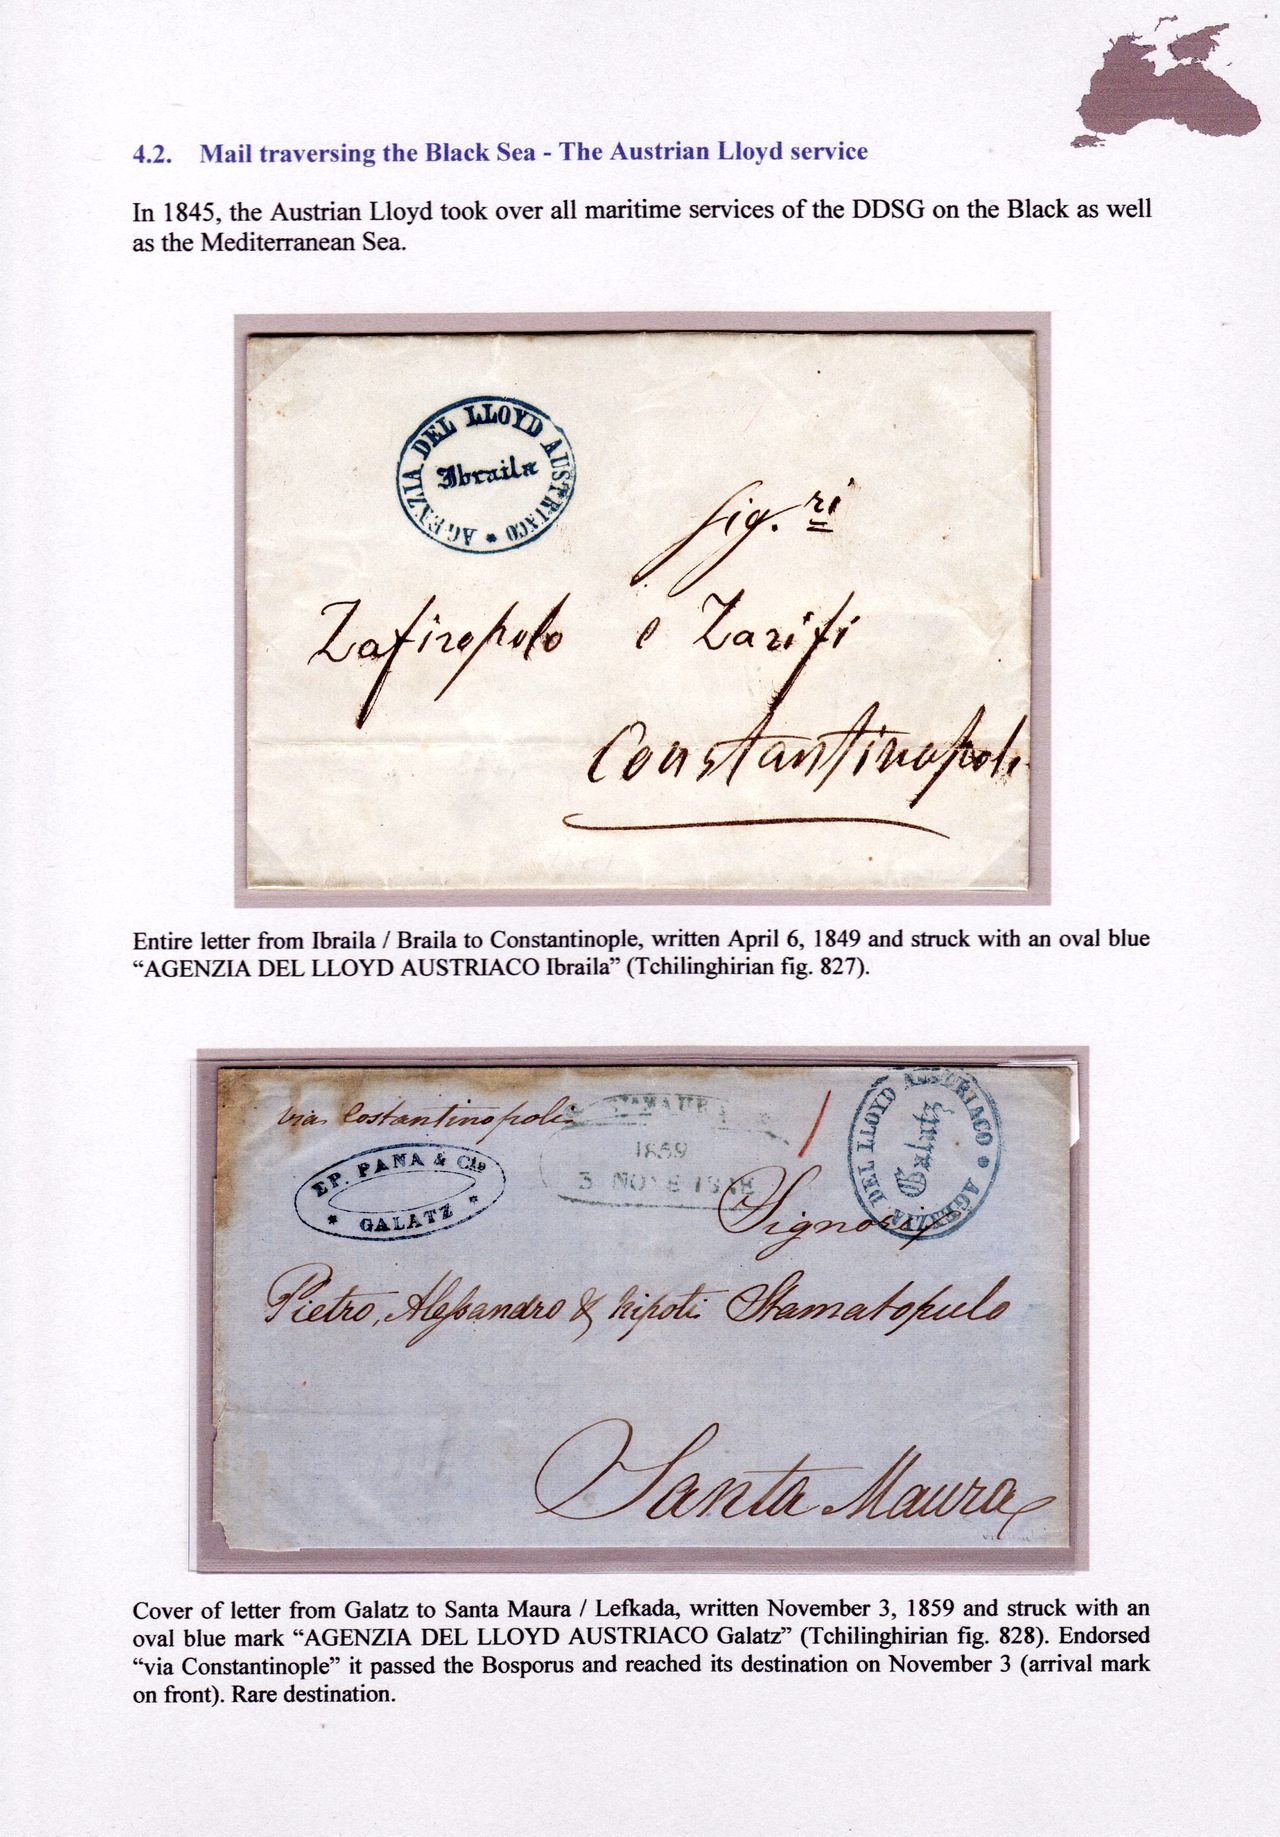 4.2. Mail traversing the Black Sea - The Austrian Lloyd service
In 1845, the Austrian Lloyd took over all maritime services of the DDSG on the Black as well
as the Mediterranean Sea.
AGENZIA DEL LLOYD AUSTRIACO *
Ibraila
Sig.ri
Zafiropolo e Zarifi
Constantinopoli
Entire letter from Ibraila / Braila to Constantinople, written April 6, 1849 and struck with an oval blue
“AGENZIA DEL LLOYD AUSTRIACO Ibraila” (Tchilinghirian fig. 827).
via Costantinopoli
EP. PANA & Cie
* GALATZ *
1859
3 NOVE
AGENZIA DEL LLOYD AUSTRIACO
Galatz
Signori
Pietro, Alessandro & Nipoti Stamatopulo
Santa Maura
Cover of letter from Galatz to Santa Maura / Lefkada, written November 3, 1859 and struck with an
oval blue mark “AGENZIA DEL LLOYD AUSTRIACO Galatz” (Tchilinghirian fig. 828). Endorsed
“via Constantinople” it passed the Bosporus and reached its destination on November 3 (arrival mark
on front). Rare destination.